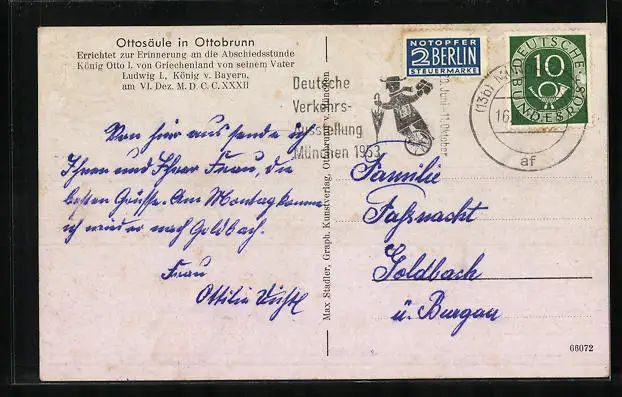 Ottosäule in Ottobrunn
Errichtet zur Erinnerung an die Abschiedsstunde
König Otto I. von Griechenland von seinem Vater
Ludwig I., König v. Bayern,
am VI. Dez. M. D. C. C. XXXII
NOTOPFER
2 BERLIN
STEUERMARKE
DEUTSCHE
BUNDESPOST
10
Deutsche
Verkehrs-
Ausstellung
München 1953
Juni-11.Oktober
(13b)
16
af
Von hier aus sende ich
Ihnen und Ihrer Frau, die
besten Grüsse. Am Montag komme
ich wieder nach Goldbach.
Frau
Ottilie
Max Stadler, Graph. Kunstverlag, Ottobrunn v. München
Familie
Faßnacht
Goldbach
ü. Burgau
66072